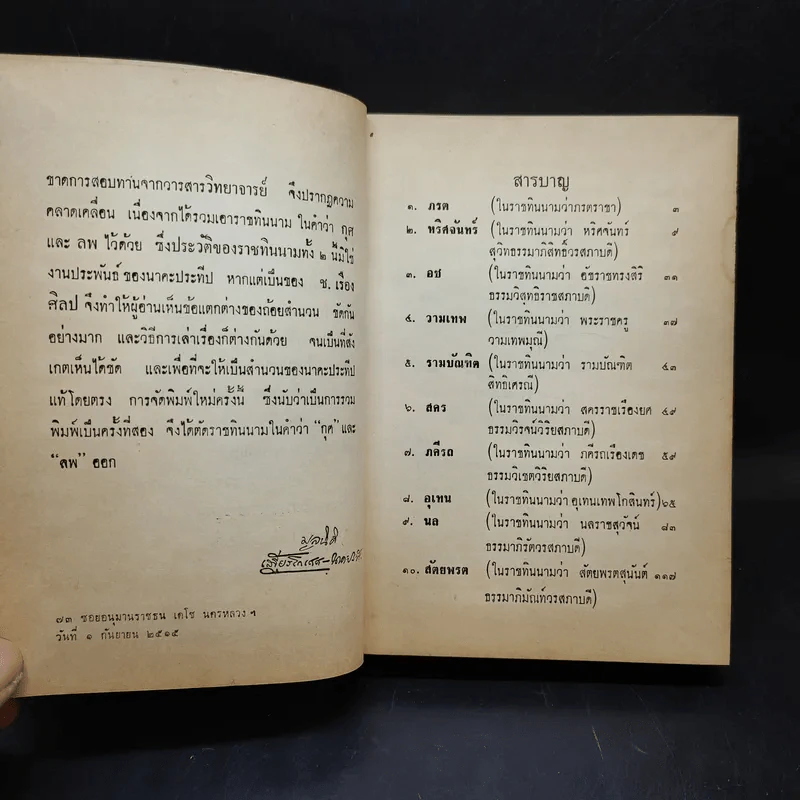 ขาดการสอบทานจากวารสารวิทยาจารย์ จึงปรากฏความ
คลาดเคลื่อน เนื่องจากได้รวมเอาราชทินนาม ในคำว่า กุศ
และ ลพ ไว้ด้วย ซึ่งประวัติของราชทินนามทั้ง ๒ นี้มิใช่
งานประพันธ์ ของนาคะประทีป หากแต่เป็นของ ช. เรือง
ศิลป จึงทำให้ผู้อ่านเห็นข้อแตกต่างของถ้อยสำนวน ขัดกัน
อย่างมาก และวิธีการเล่าเรื่องก็ต่างกันด้วย จนเป็นที่สัง
เกตเห็นได้ชัด และเพื่อที่จะให้เป็นสำนวนของนาคะประทีป
แท้โดยตรง การจัดพิมพ์ใหม่ครั้งนี้ ซึ่งนับว่าเป็นการรวม
พิมพ์เป็นครั้งที่สอง จึงได้ตัดราชทินนามในคำว่า “กุศ” และ
“ลพ” ออก
๗๓ ซอยอนุมานราชธน เดโช นครหลวง ฯ
วันที่ ๑ กันยายน ๒๕๑๕
สารบาญ
๑. ภรต (ในราชทินนามว่าภรตราชา) ๓
๒. หริสจันทร์ (ในราชทินนามว่า หริศจันทร์ ๙
สุวิทธรรมาภิสิทธิ์วรสภาบดี)
๓. อช (ในราชทินนามว่า อัชราชทรงสิริ ๓๑
ธรรมวิสุทธิราชสภาบดี)
๔. วามเทพ (ในราชทินนามว่า พระราชครู ๓๗
วามเทพมุณี)
๕. รามบัณฑิต (ในราชทินนามว่า รามบัณฑิต ๔๓
สิทธิเศรณี)
๖. สคร (ในราชทินนามว่า สครราชเรืองยศ ๔๙
ธรรมวิรจน์วิริยสภาบดี)
๗. ภคีรถ (ในราชทินนามว่า ภคีรถเรืองเดช ๕๙
ธรรมวิเชตวิริยสภาบดี)
๘. อุเทน (ในราชทินนามว่า อุเทนเทพโกสินทร์) ๖๕
๙. นล (ในราชทินนามว่า นลราชสุวัจน์ ๘๓
ธรรมาภิรัตวรสภาบดี)
๑๐. สัตยพรต (ในราชทินนามว่า สัตยพรตสุนันต์ ๑๑๗
ธรรมาภิมัณฑ์วรสภาบดี)